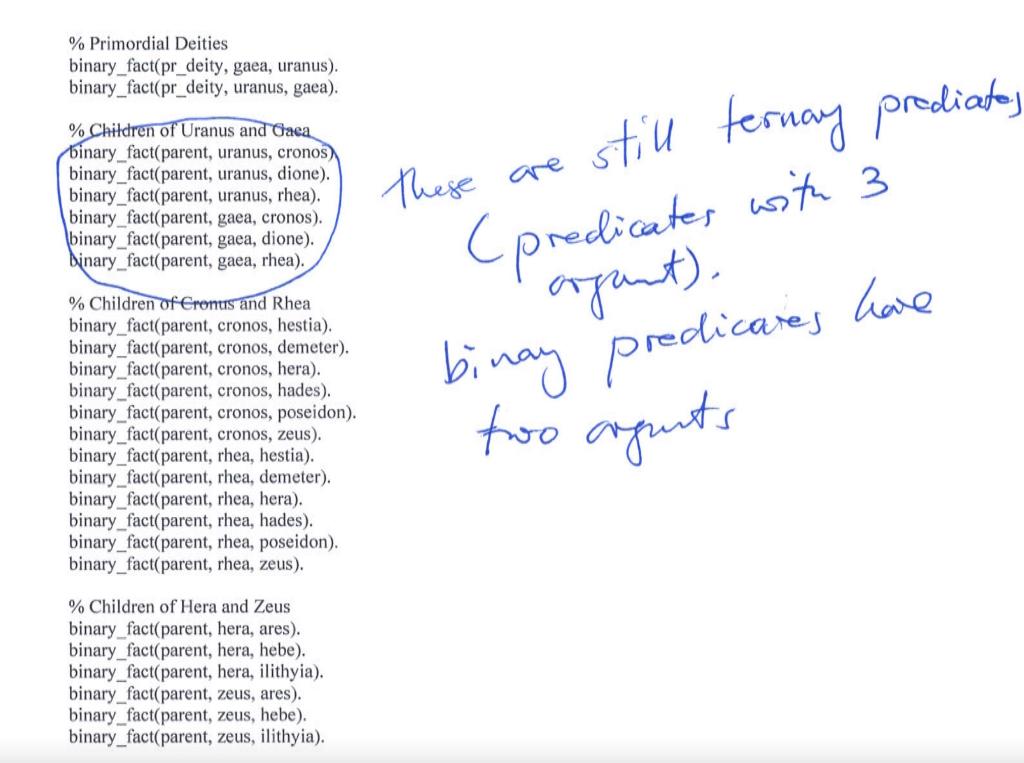 % Primordial Deities
binary_fact(pr_deity, gaea, uranus).
binary_fact(pr_deity, uranus, gaea).
% Children of Uranus and Gaea
binary_fact(parent, uranus, cronos).
binary_fact(parent, uranus, dione).
binary_fact(parent, uranus, rhea).
binary_fact(parent, gaea, cronos).
binary_fact(parent, gaea, dione).
binary_fact(parent, gaea, rhea).
these are still ternay prediates
(predicates with 3
argumt).
binay predicares have
two argumts
% Children of Cronus and Rhea
binary_fact(parent, cronos, hestia).
binary_fact(parent, cronos, demeter).
binary_fact(parent, cronos, hera).
binary_fact(parent, cronos, hades).
binary_fact(parent, cronos, poseidon).
binary_fact(parent, cronos, zeus).
binary_fact(parent, rhea, hestia).
binary_fact(parent, rhea, demeter).
binary_fact(parent, rhea, hera).
binary_fact(parent, rhea, hades).
binary_fact(parent, rhea, poseidon).
binary_fact(parent, rhea, zeus).
% Children of Hera and Zeus
binary_fact(parent, hera, ares).
binary_fact(parent, hera, hebe).
binary_fact(parent, hera, ilithyia).
binary_fact(parent, zeus, ares).
binary_fact(parent, zeus, hebe).
binary_fact(parent, zeus, ilithyia).